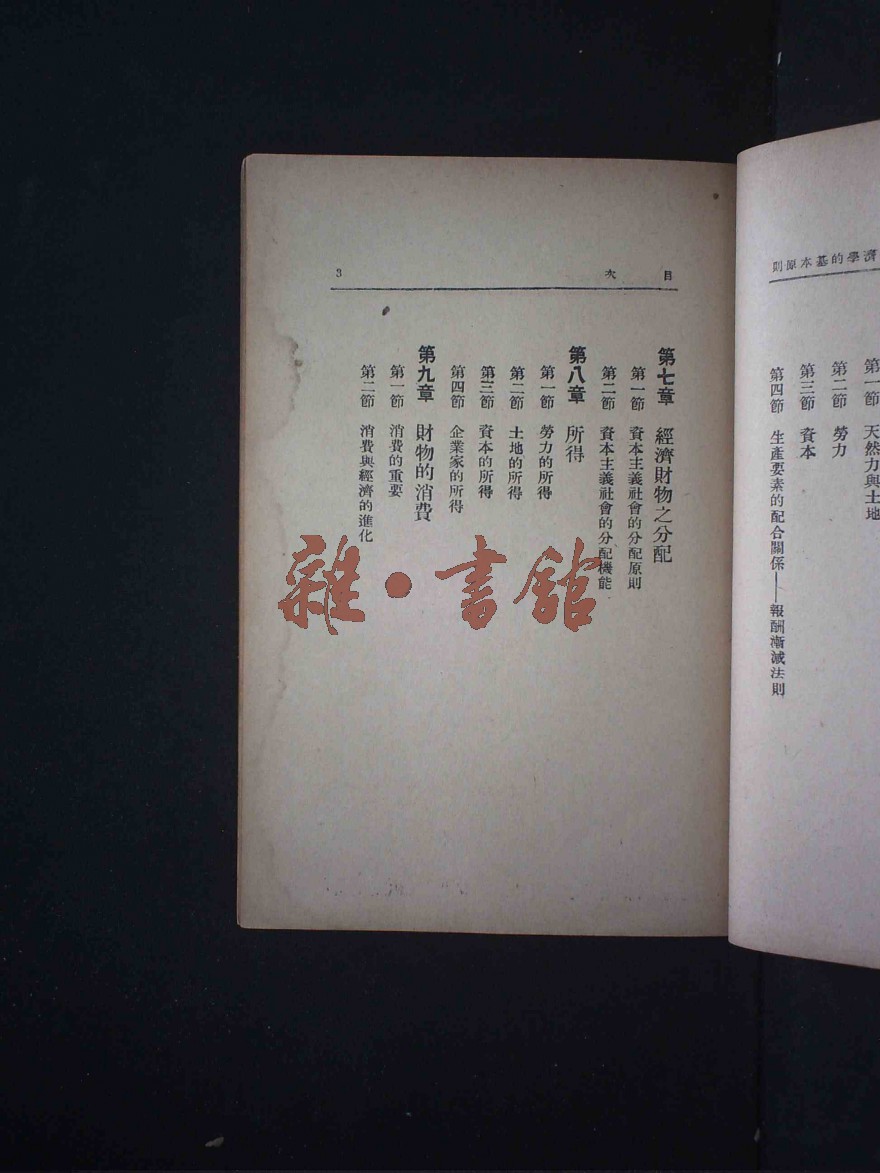 濟學的基本原則
第一節 天然力與土地
第二節 勞力
第三節 資本
第四節 生產要素的配合關係——報酬漸減法則
目次
3
第七章 經濟財物之分配
第一節 資本主義社會的分配原則
第二節 資本主義社會的分配機能
第八章 所得
第一節 勞力的所得
第二節 土地的所得
第三節 資本的所得
第四節 企業家的所得
第九章 財物的消費
第一節 消費的重要
第二節 消費與經濟的進化
雜·書館